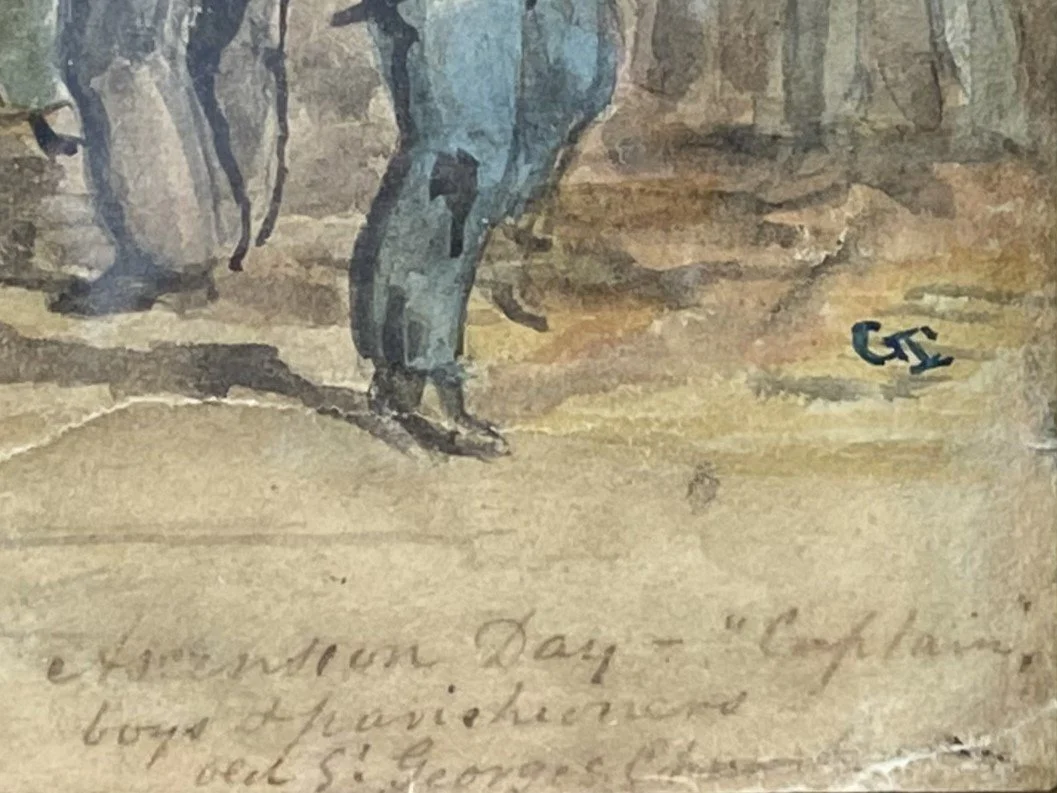 GS
Ascension Day - "Captain",
boys & parishioners
old St. Georges Church